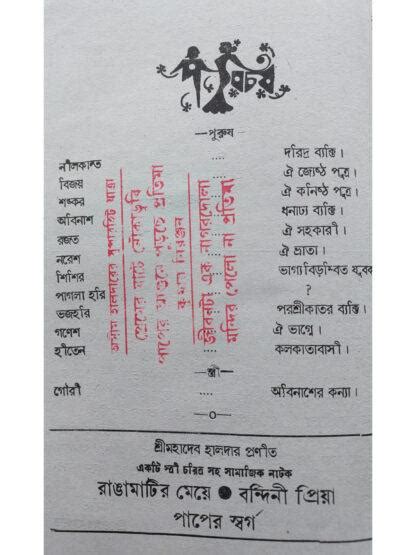 পরিচয়
—পুরুষ—
নীলকান্ত .... দরিদ্র ব্যক্তি।
বিজয় .... ঐ জ্যেষ্ঠ পুত্র।
শঙ্কর .... ঐ কনিষ্ঠ পুত্র।
অবিনাশ .... ধনাঢ্য ব্যক্তি।
রজত .... ঐ সহকারী।
নরেশ .... ঐ ভ্রাতা।
শিশির .... ভাগ্যবিড়ম্বিত যুবক
পাগলা হরি .... ?
ভজহরি .... পরশ্রীকাতর ব্যক্তি।
গণেশ .... ঐ ভাগ্নে।
হীতেন .... কলকাতাবাসী।
—স্ত্রী—
গৌরী .... অবিনাশের কন্যা।
—০—
অসীম হালদারের সুপারহিট যাত্রা
প্রেমের ঘাটে নৌকাডুবি
পাপের আগুনে পুড়ছে প্রতিমা
কুমাল নিরঞ্জন
জীবনটা এক নাগরদোলা
মন্দির পেলো না প্রতিমা
শ্রীমহাদেব হালদার প্রণীত
একটি স্ত্রী চরিত্র সহ সামাজিক নাটক
রাঙামাটির মেয়ে ● বন্দিনী প্রিয়া
পাপের স্বর্গ